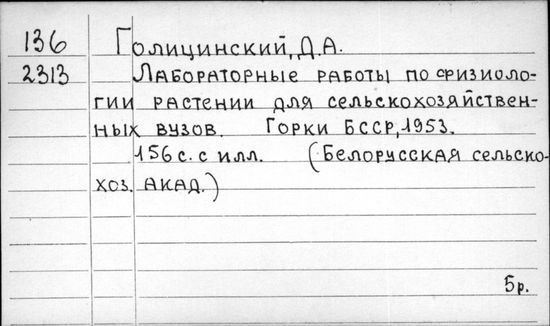 136 Голицинский, Д.А.
2313 Лабораторные работы по физиоло-
гии растении для сельскохозяйствен-
ных вузов. Горки БССР, 1953.
156 с. с илл. (Белорусская сельско-
хоз. акад.)
5р.